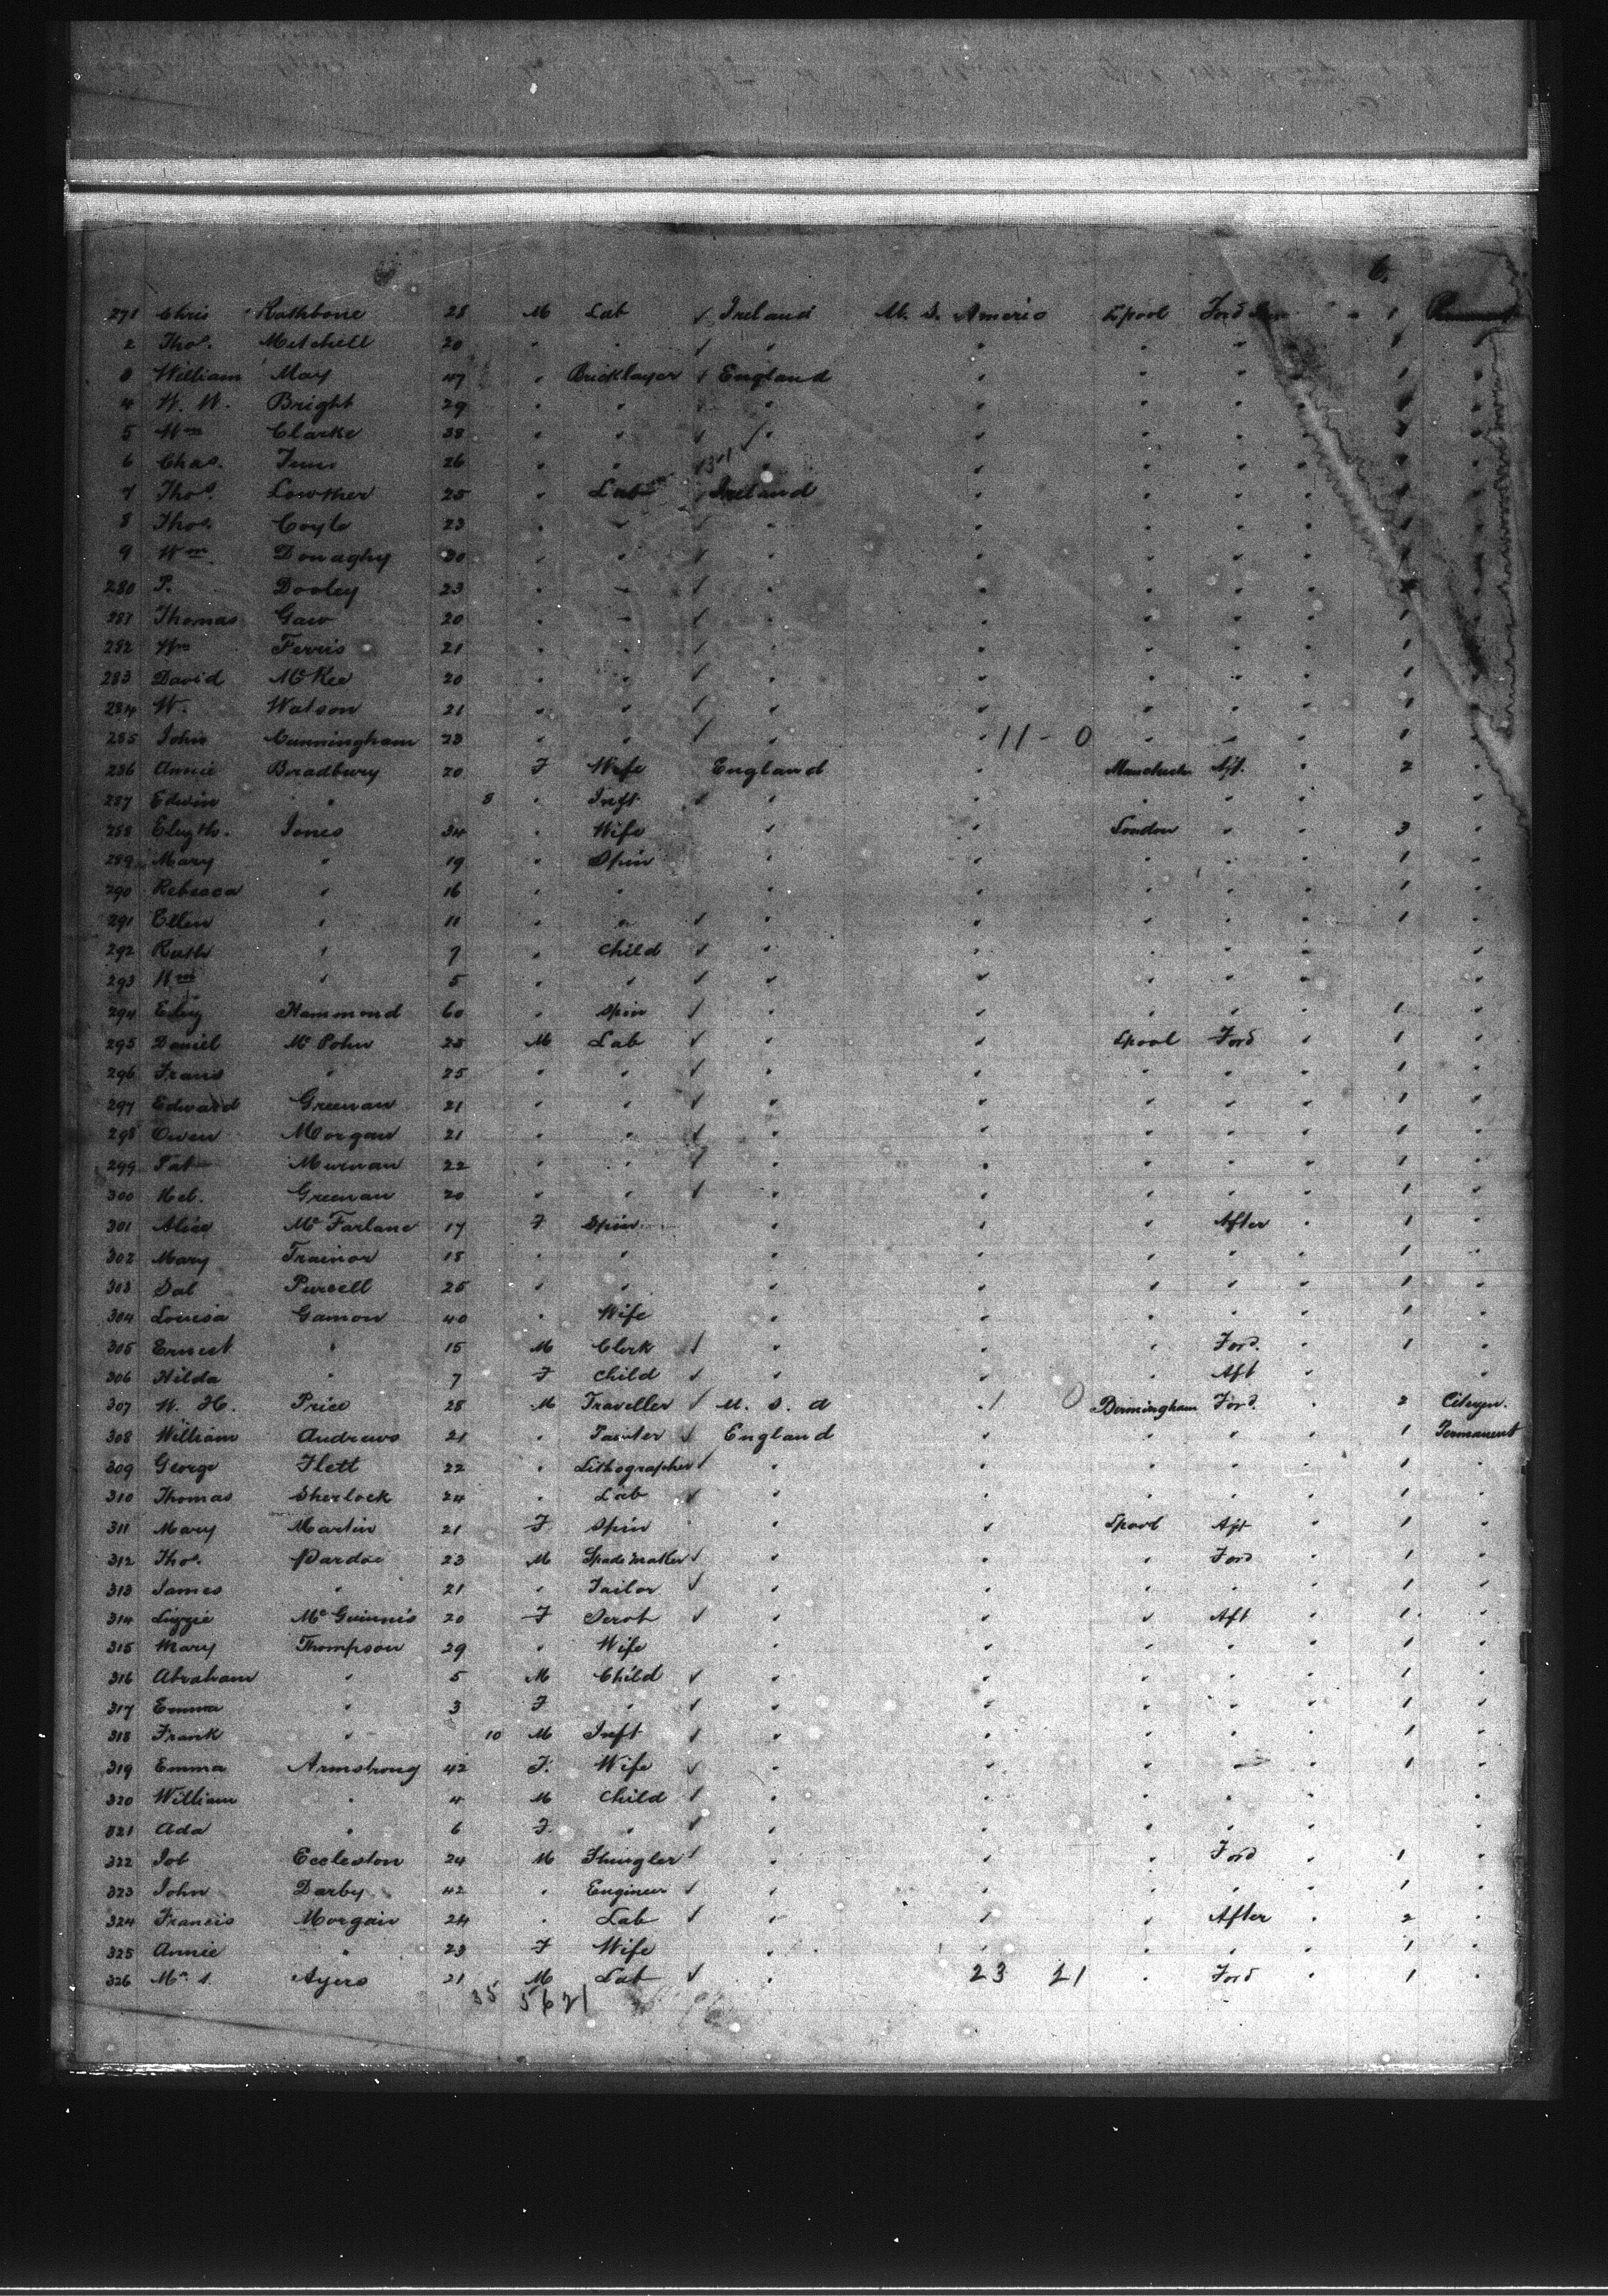 6.
271 Chris Rathbone 28 M Lab ✓ Ireland U. S. Americo Lpool Ford " 1
2 Thos. Mitchell 20 " " ✓ " " " " " 1 "
3 William May 47 " Bricklayer ✓ England " " " " 1 "
4 W. W. Bright 29 " " " " " " " "
5 Wm Clarke 38 " " ✓ " " " " " "
6 Chas. 26 " " " " " " " "
7 Thos. Lowther 25 " Lab ✓ Ireland " " " " "
8 Thos. Coyle 23 " " ✓ " " " " " 1 "
9 Wm Donaghy 30 " " ✓ " " " " " 1 "
280 P. Dooley 23 " " ✓ " " " " "
281 Thomas Gaw 20 " " ✓ " " " " " 1
282 Wm Ferris 21 " " ✓ " " " " " 1
283 David McKee 20 " " ✓ " " " " " 1
284 W. Watson 21 " " ✓ " " " " " 1
285 John Cunningham 23 " " ✓ " " 11 - 0 " " " 1 "
286 Annie Bradbury 20 F Wife England " Manchester Aft. " 2
287 Edwin " 8 " Inft ✓ " " " " " "
288 Elizth. Jones 34 " Wife " " London " " 3 "
289 Mary " 19 " Spin " " " " " 1 "
290 Rebecca " 16 " " " " " " " 1 "
291 Ellen " 11 " " ✓ " " " " " 1 "
292 Ruth " 7 " Child ✓ " " " " " "
293 Wm " 5 " " ✓ " " " " " "
294 Eliz Hammond 60 " Spin ✓ " " " " " 1 "
295 Daniel 25 M Lab ✓ " " Lpool Ford " 1 "
296 Francis " 25 " " ✓ " " " " " 1 "
297 Edward Greenan 21 " " ✓ " " " " " 1 "
298 Owen Morgan 21 " " ✓ " " " " " 1 "
299 Pat Murnan 22 " " ✓ " " " " " 1 "
300 Greenan 20 " " ✓ " " " " " 1 "
301 Alice McFarlane 17 F Spin " " " After " 1 "
302 Mary Trainor 18 " " " " " " " 1 "
303 Purcell 25 " " " " " " " 1 "
304 Louisa Gamon 40 " Wife " " " " " 1 "
305 Ernest " 15 M Clerk ✓ " " " Ford. " 1 "
306 Hilda " 7 F Child ✓ " " " Aft " "
307 W. H. Price 28 M Traveller ✓ U. S. A " 1 0 Birmingham Ford. " 2 Citizen.
308 William Andrews 21 " Painter ✓ England " " " " 1 Permanent
309 George Flett 22 " Lithographer ✓ " " " " " 1 "
310 Thomas Sherlock 24 " Lab ✓ " " " " " 1 "
311 Mary Martin 21 F Spin " " Lpool Aft " 1 "
312 Thos. Pardoe 23 M Spade maker ✓ " " " Ford " 1 "
313 James " 21 " Tailor ✓ " " " " " 1 "
314 Lizzie McGuinnis 20 F Servt ✓ " " " Aft " 1 "
315 Mary Thompson 29 " Wife " " " " " 1 "
316 Abraham " 5 M Child ✓ " " " " " 1 "
317 Emma " 3 F " ✓ " " " " " 1 "
318 Frank " 10 M Inft ✓ " " " " " 1 "
319 Emma Armstrong 42 F. Wife ✓ " " " " " 1 "
320 William " 4 M Child ✓ " " " " " "
321 Ada " 6 F. " ✓ " " " " " "
322 Job Eccleston 24 M Shingler ✓ " " " Ford " 1 "
323 John Darby 42 " Engineer ✓ " " " " " 1 "
324 Francis Morgan 24 " Lab ✓ " " " After " 2 "
325 Annie " 23 F Wife " " " " " 1 "
326 Ayers 21 M Lab ✓ " 23 21 " Ford " 1 "
35 5621